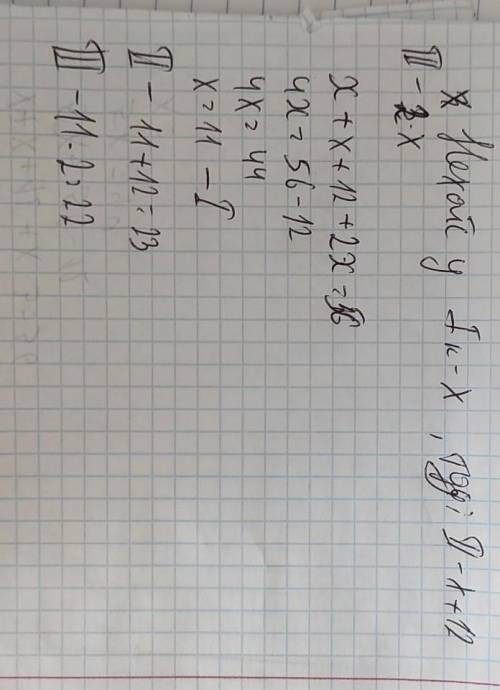 Нехай у I к - x, тоді II - x + 12
III - 2·x
x + x + 12 + 2x = 56
4x = 56 - 12
4x = 44
x = 11 - I
II - 11 + 12 = 23
III - 11 · 2 = 22